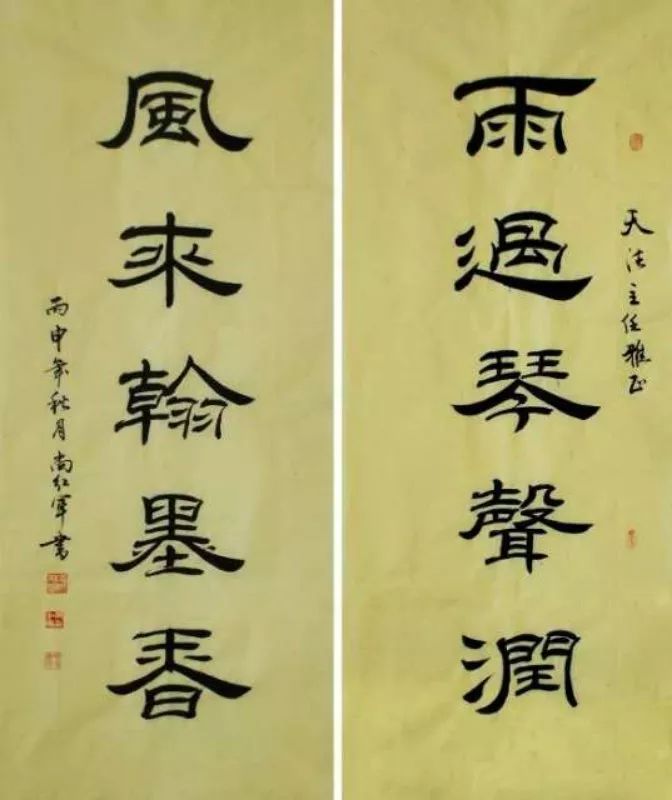 天法主任雅正
雨過琴聲潤
風來翰墨香
丙申年秋月尚紅軍書